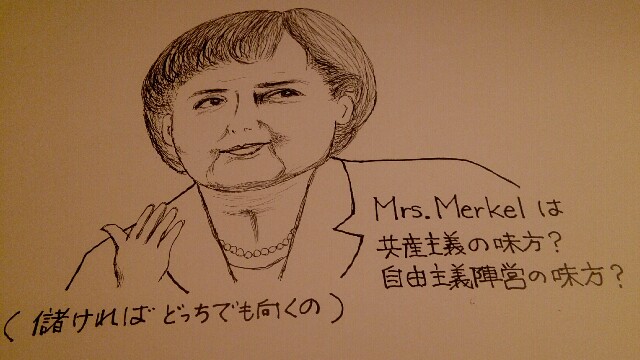 Mrs. Merkel は
共産主義の味方?
自由主義陣営の味方?
(儲ければどっちでも向くの)